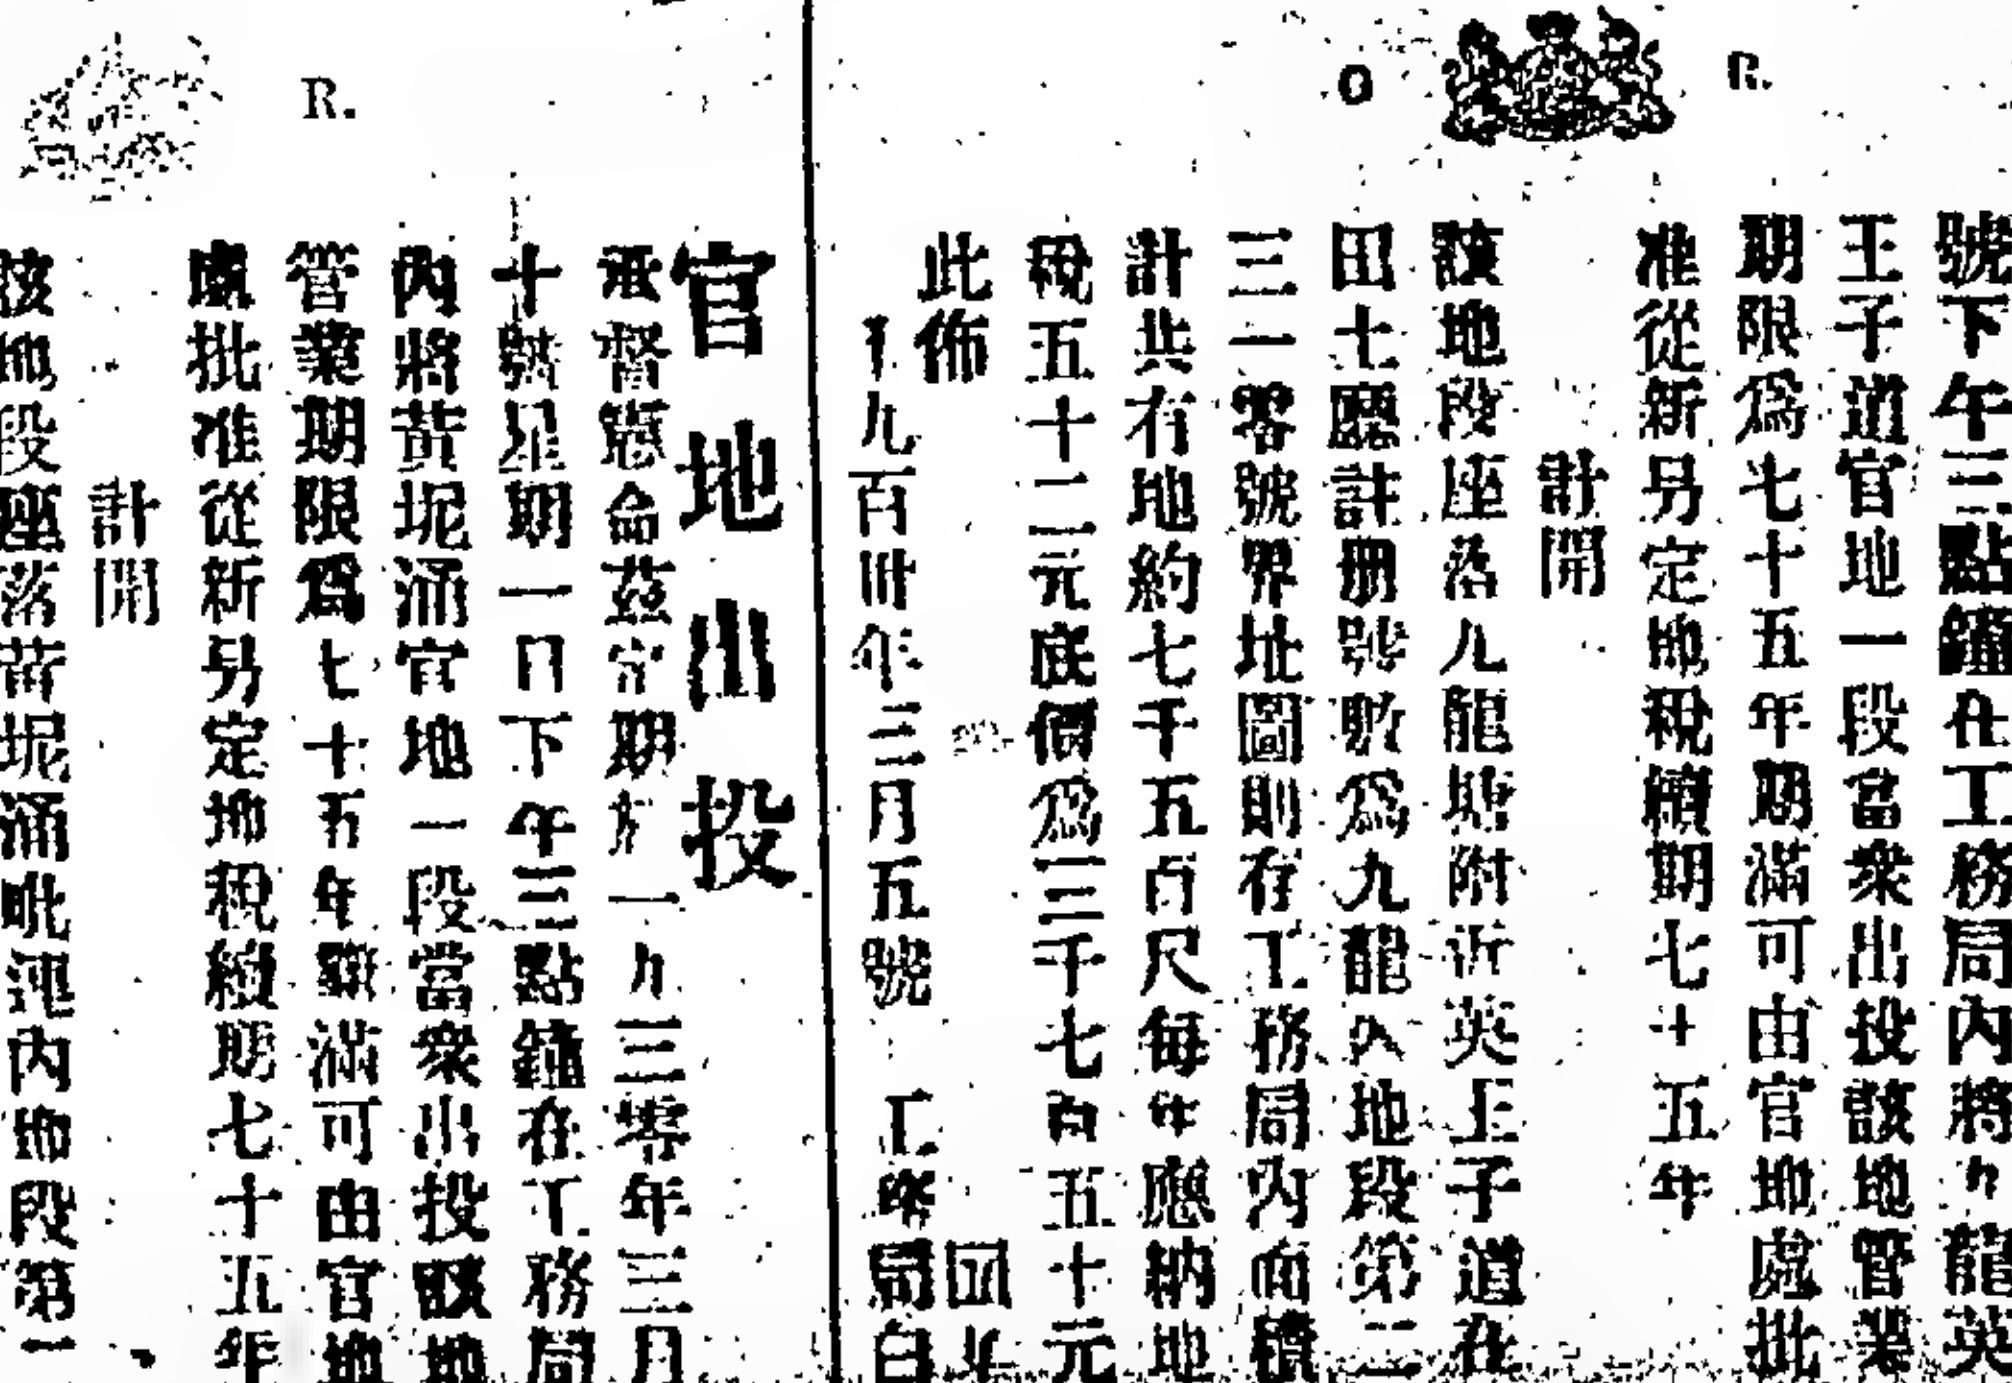 O R.
號下午三點鐘在工務局內將九龍英
王子道官地一段當衆出投該地管業
期限爲七十五年期滿可由官地處批
准從新另定地稅續期七十五年
計開
該地段座落九龍塘附近英王子道在
田七廛註册號數爲九龍內地段第二
三一零號界址圖則存工務局內面積
計共有地約七千五百尺每年應納地
稅五十二元底價爲三千七百五十元
此佈
一九百卅年三月五號 工務局白
R.
官地出投
承督憲命茲定期於一九三零年三月
十號星期一日下午三點鐘在工務局
內將黃坭涌官地一段當衆出投該地
管業期限爲七十五年期滿可由官地
處批准從新另定地稅續期七十五年
計開
該地段座落黃坭涌毗連內地段第二